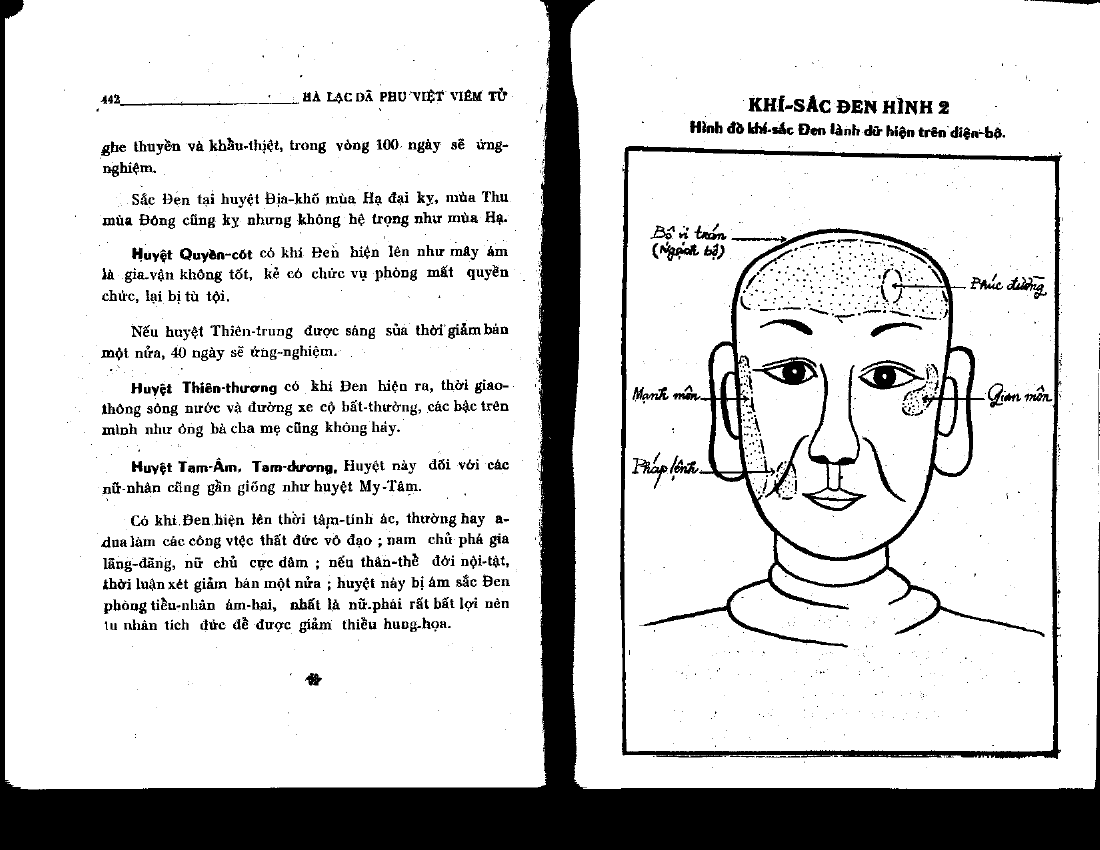 442 HÀ LẠC DÃ PHU VIỆT VIÊM TỬ
ghe thuyền và khẩu-thiệt, trong vòng 100 ngày sẽ ứng-
nghiệm.
Sắc Đen tại huyệt Địa-khố mùa Hạ đại kỵ, mùa Thu
mùa Đông cũng kỵ nhưng không hệ trọng như mùa Hạ.
Huyệt Quyền-cốt có khí Đen hiện lên như mây ám
là gia-vận không tốt, kẻ có chức vụ phòng mất quyền
chức, lại bị tù tội.
Nếu huyệt Thiên-trung được sáng sủa thời giảm bán
một nửa, 40 ngày sẽ ứng-nghiệm.
Huyệt Thiên-thương có khí Đen hiện ra, thời giao-
thông sông nước và đường xe cộ bất-thường, các bậc trên
mình như ông bà cha mẹ cũng không hay.
Huyệt Tam-Âm, Tam-dương, Huyệt này đối với các
nữ-nhân cũng gần giống như huyệt My-Tâm.
Có khí Đen hiện lên thời tâm-tính ác, thường hay a-
dua làm các công vtệc thất đức vô đạo ; nam chủ phá gia
lãng-đãng, nữ chủ cực dâm ; nếu thân-thể đới nội-tật,
thời luận xét giảm bán một nửa ; huyệt này bị ám sắc Đen
phòng tiểu-nhân ám-hại, nhất là nữ-phái rất bất lợi nên
tu nhân tích đức để được giảm thiểu hung-họa.
KHÍ-SẮC ĐEN HÌNH 2
Hình đồ khí-sắc Đen lành dữ hiện trên diện-bộ.
Bộ vị trán
(Ngạch bộ)
Phúc đường
Mạnh môn
Gian môn
Pháp lệnh